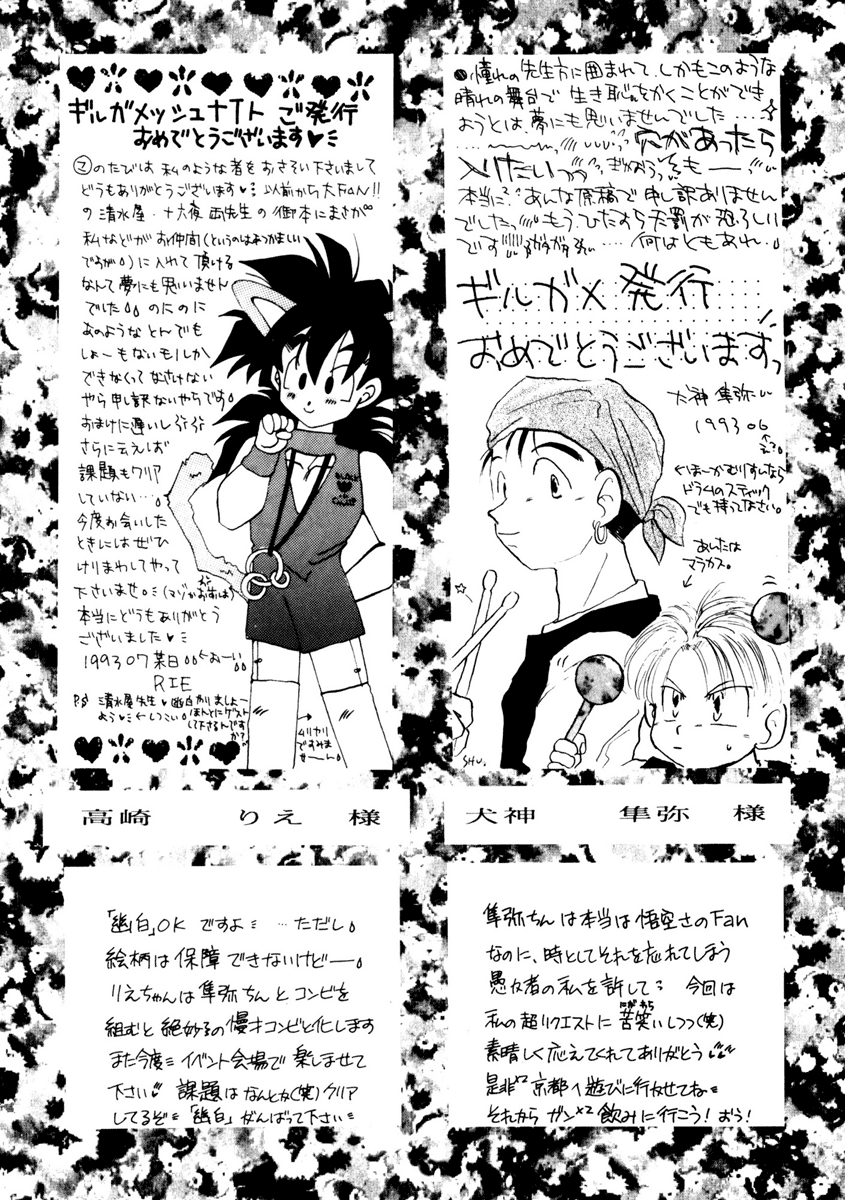 ギルガメッシュナイト ご発行
おめでとうございます♥
このたびは 私のような者を おさそい下さいまして
どうもありがとうございます♥ 以前から大FAN!!
の 清水屋・十六夜 西先生の御本にまさか
私などが お仲間(というのはあつかましい
ですが)に入れて頂ける
なんて夢にも思いません
でした。 のにのに
あのような とんでも
しょーもないもんしか
できなくって なさけない
やら申し訳ないやらです。
おまけに遅いし
さらに云えば
課題もクリア
していない…。
今度お会いした
ときにはぜひ
けりまわしてやって
下さいませ。
本当にどうもありがとう
ございました♥
1993 07 某日 ←おーい
RIE
P.S 清水屋先生♥幽白かりましょー
よう♥ ←しつこい ほんとにゲスト
して下さるんです
か?
BLACK
ムリヤリ
ですみま
せーん。
●憧れの先生方に囲まれて、しかもこのような
晴れの舞台で 生き恥をかくことができ
ようとは、夢にも思いませんでした……
穴があったら
入りたいっっ
本当に、あんな原稿で申し訳ありません
でしたっ もう、ひたすら天罰が恐ろしい
です …… 何はともあれ。
ギルガメ 発行
おめでとうございますっ
犬神 隼弥
1993 06
ドラムのスティック
でも持って下さい。
あしたは
マラカス。
SHU.
高崎 りえ 様
犬神 隼弥 様
「幽白」OK ですよ …ただし。
絵柄は保障できないけどー。
りえちゃんは隼弥ちんとコンビを
組むと絶妙子の漫才コンビと化します
また今度 イベント会場で 楽しませて
下さい 課題はなんとか(笑)クリア
してるぞ 「幽白」がんばって下さい
隼弥ちんは本当は悟空さのFan
なのに、時としてそれを忘れてしまう
愚友者の私を許して 今回は
私の超リクエストに苦笑いしつつ(笑)
にがわら
素晴しく応えてくれてありがとう
是非×2 京都へ遊びに行かせてね
それから ガン×2 飲みに行こう! おう!